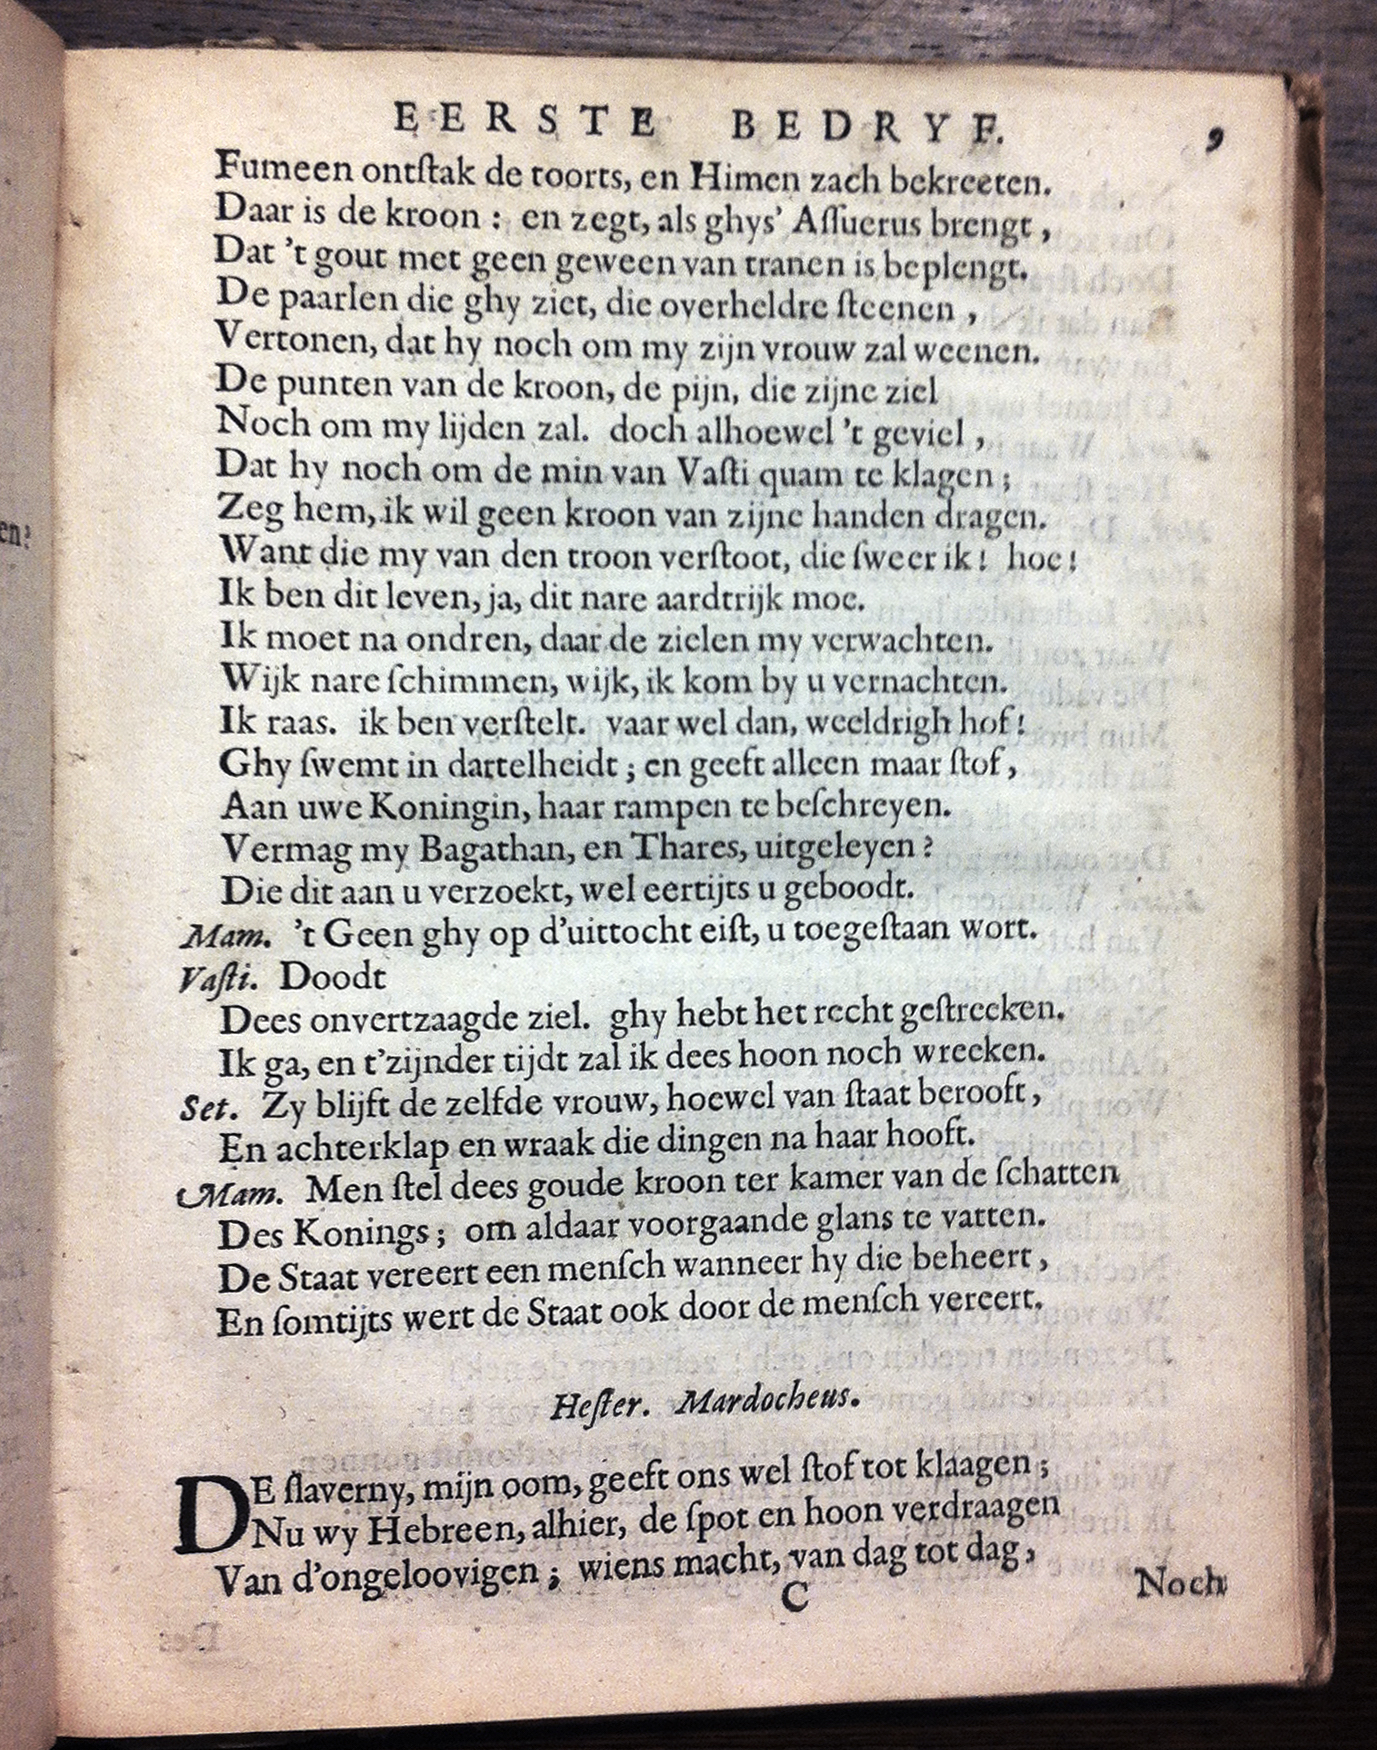 en?
EERSTE BEDRYF. 9
Fumeen ontſtak de toorts, en Himen zach bekreeten.
Daar is de kroon : en zegt, als ghys' Aſſuerus brengt ,
Dat 't gout met geen geween van tranen is beplengt.
De paarlen die ghy ziet, die overheldre ſteenen ,
Vertonen, dat hy noch om my zijn vrouw zal weenen.
De punten van de kroon, de pijn, die zijne ziel
Noch om my lijden zal. doch alhoewel 't geviel ,
Dat hy noch om de min van Vaſti quam te klagen ;
Zeg hem, ik wil geen kroon van zijne handen dragen.
Want die my van den troon verſtoot, die ſweer ik ! hoe !
Ik ben dit leven, ja, dit nare aardtrijk moe.
Ik moet na ondren, daar de zielen my verwachten.
Wijk nare ſchimmen, wijk, ik kom by u vernachten.
Ik raas. ik ben verſtelt. vaar wel dan, weeldrigh hof!
Ghy ſwemt in dartelheidt ; en geeft alleen maar ſtof ,
Aan uwe Koningin, haar rampen te beſchreyen.
Vermag my Bagathan, en Thares, uitgeleyen ?
Die dit aan u verzoekt, wel eertijts u geboodt.
Mam. 't Geen ghy op d'uittocht eiſt, u toegeſtaan wort.
Vaſti. Doodt
Dees onvertzaagde ziel. ghy hebt het recht geſtreeken.
Ik ga, en t'zijnder tijdt zal ik dees hoon noch wreeken.
Set. Zy blijft de zelfde vrouw, hoewel van ſtaat berooft ,
En achterklap en wraak die dingen na haar hooft.
Mam. Men ſtel dees goude kroon ter kamer van de ſchatten
Des Konings ; om aldaar voorgaande glans te vatten.
De Staat vereert een menſch wanneer hy die beheert ,
En ſomtijts wert de Staat ook door de menſch vereert.
Heſter. Mardocheus.
DE ſlaverny, mijn oom, geeft ons wel ſtof tot klaagen ;
Nu wy Hebreen, alhier, de ſpot en hoon verdraagen
Van d'ongeloovigen ; wiens macht, van dag tot dag ,
C Noch